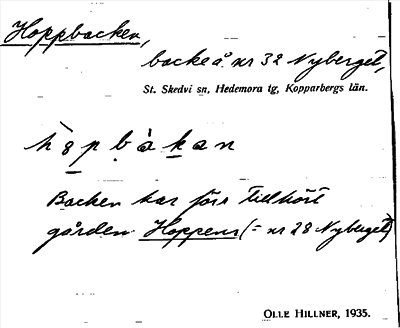 Hoppbacken,
backe å nr 32 Nyberget,
St. Skedvi sn, Hedemora tg, Kopparbergs län.
Backen har förr tillhört
gården Hoppens (= nr 28 Nyberget)
OLLE HILLNER, 1935.